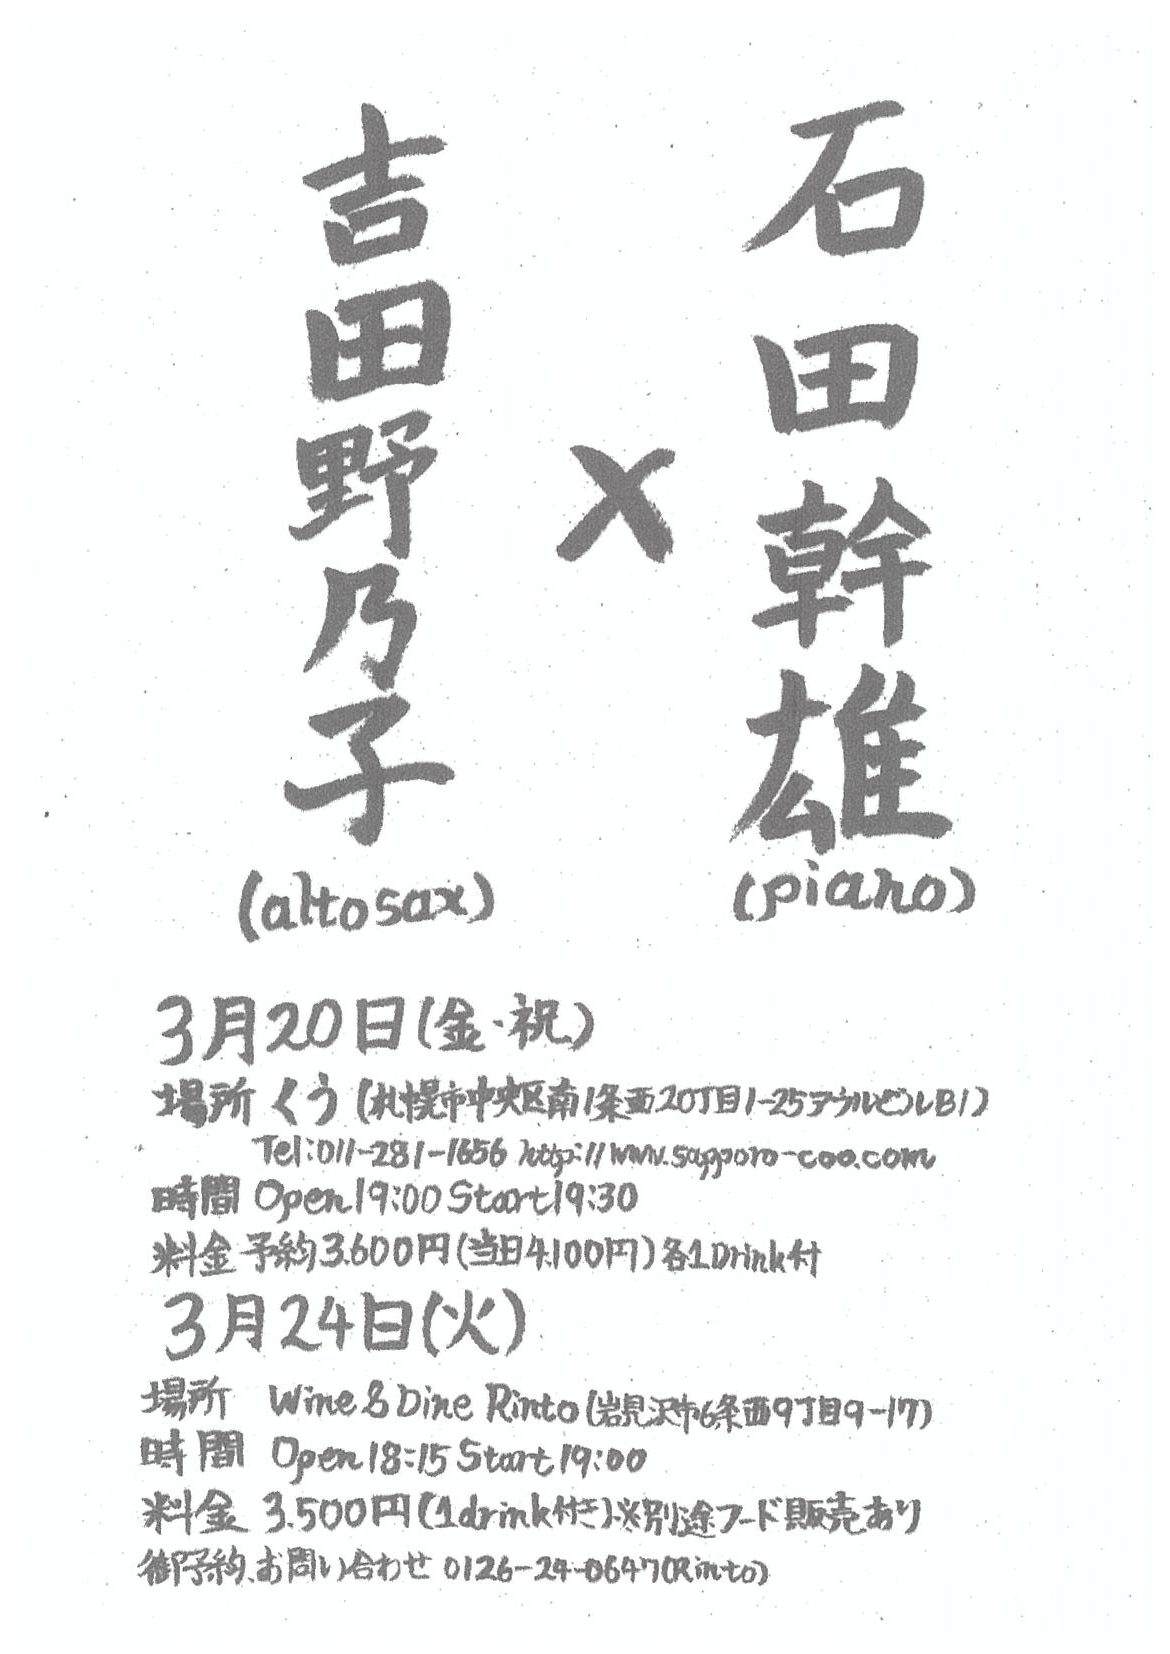 石田幹雄
(piano)
×
吉田野乃子
(altosax)
3月20日(金・祝)
場所 くう (札幌市中央区南1条西20丁目1-25アウルビルB1)
Tel:011-281-1656 http://www.sapporo-coo.com
時間 Open19:00 Start19:30
料金 予約3.600円(当日4.100円)各1Drink付
3月24日(火)
場所 Wine & Dine Rinto(岩見沢市6条西9丁目9-17)
時間 Open18:15 Start19:00
料金 3.500円(1drink付き)※別途フード販売あり
御予約、お問い合わせ 0126-24-0647(Rinto)